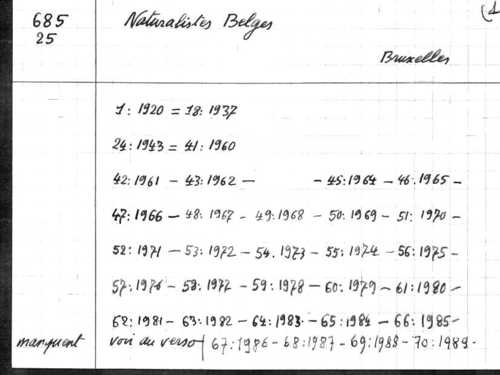 685 Naturalistes Belges (1
25
Bruxelles
1: 1920 = 18: 1937
24: 1943 = 41: 1960
42: 1961 - 43: 1962 - - 45: 1964 - 46: 1965 -
47: 1966 - 48: 1967 - 49: 1968 - 50: 1969 - 51: 1970 -
52: 1971 - 53: 1972 - 54. 1973 - 55: 1974 - 56: 1975 -
57: 1976 - 58: 1977 - 59: 1978 - 60: 1979 - 61: 1980 -
62: 1981 - 63: 1982 - 64: 1983 - 65: 1984 - 66: 1985 -
manquent voir au verso / 67: 1986 - 68: 1987 - 69: 1988 - 70: 1989 -